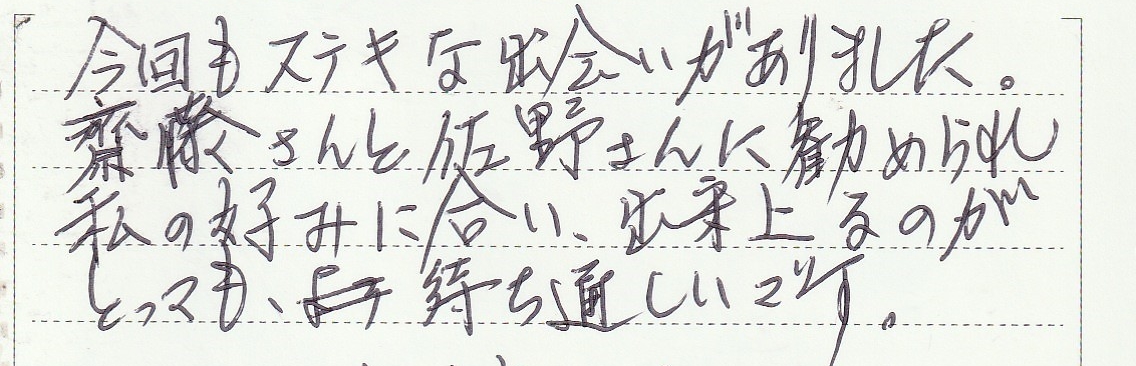 今回もステキな出会いがありました。
齋藤さんと佐野さんに勧められ
私の好みに合い、出来上るのが
とっても、待ち通しいです。